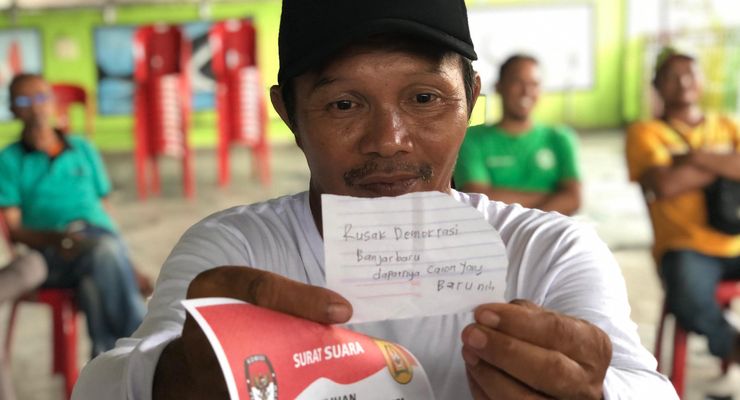 Rusak Demokrasi
Banjarbaru
dapatnya Calon Yang
Baru nih
SURAT SUARA